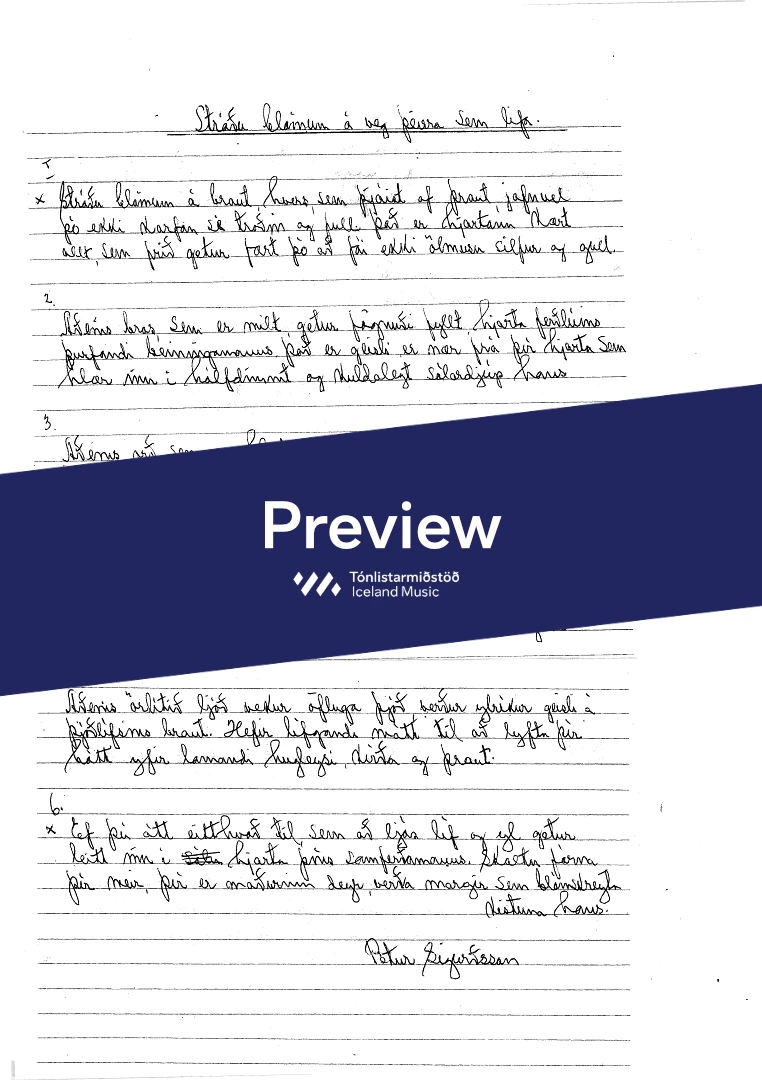 Stráðu blómum á veg þeirra sem lifa.
1
x Stráðu blómum á braut, hvers, sem þjáist af þraut, jafnvel
þó ekki karfan sé troðin og full. Það er hjartann kært
allt, sem prítt getur fært þó að fái ekki ölmusu silfur og gull.
2.
Aðeins bros, sem er milt, getur fögnuði fyllt hjarta ferðlúins
þurfandi beiningamanns það er geisli er nær frá þér hjarta sem
hlær inn í hálfdimmt og kuldalegt sálardjúp hans
3.
Aðeins orð sem
Preview
Tónlistarmiðstöð
Iceland Music
Aðeins örlítið ljóð vekur öfluga þjóð verður ylríkur geisli á
þjóðlífsins braut. Hefir lífgandi mátt til að lyfta þér
hátt yfir lamandi hugleysi, kvíða og þraut.
6.
x Ef þú átt eitthvað til, sem að ljáa líf og yl getur
leitt inn í hjarta þíns samferðamanns. Skaltu fórna
þér meir, þér er maðurinn deyr, verða margir sem blómskreyta
kistuna hans.
Pétur Sigurðsson